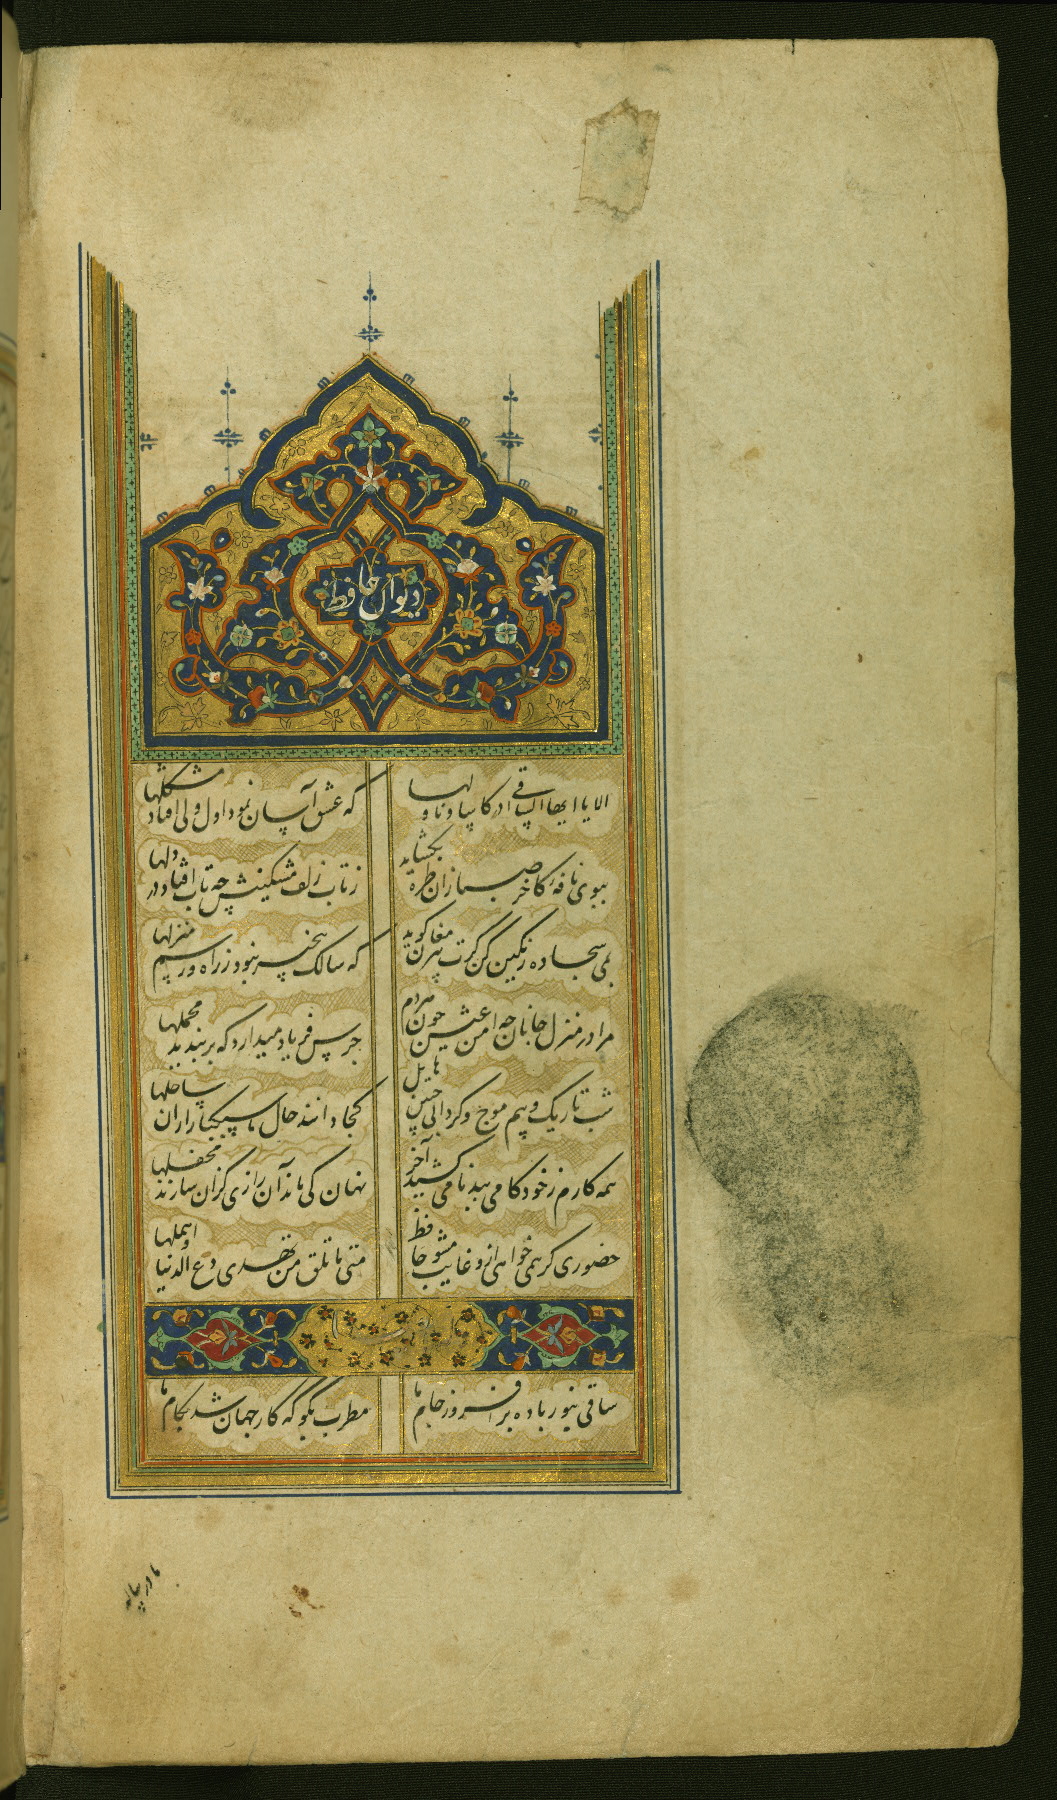 دیوان حافظ
الا یا ایها الساقی ادر کاسا و ناولها
که عشق آسان نمود اول ولی افتاد مشکلها
ببوی نافهٔ کاخر صبا زان طره بکشاید
زتاب زلف مشکینش چه تاب افتاد در دلها
بمی سجاده رنگین کن کرت پیر مغان کوید
که سالک بیخبر نبود ز راه و رسم منزلها
مرا در منزل جانان چه امن عیش چون مردم
جرس فریاد میدارد که بربندید محملها
شب تاریک و بیم موج و کردابی چنین هایل
کجا دانند حال ما سبکباران ساحلها
همه کارم ز خود کامی ببدنامی کشید آخر
نهان کی ماند آن رازی کزان سازند محفلها
حضوری کر همی خواهی ازو غایب مشو حافظ
متی ما تلق من تهوی دع الدنیا و اهملها
ساقی بنور باده برافروز جام ما
مطرب بگو که کار جهان شد بکام ما
ما در پیاله